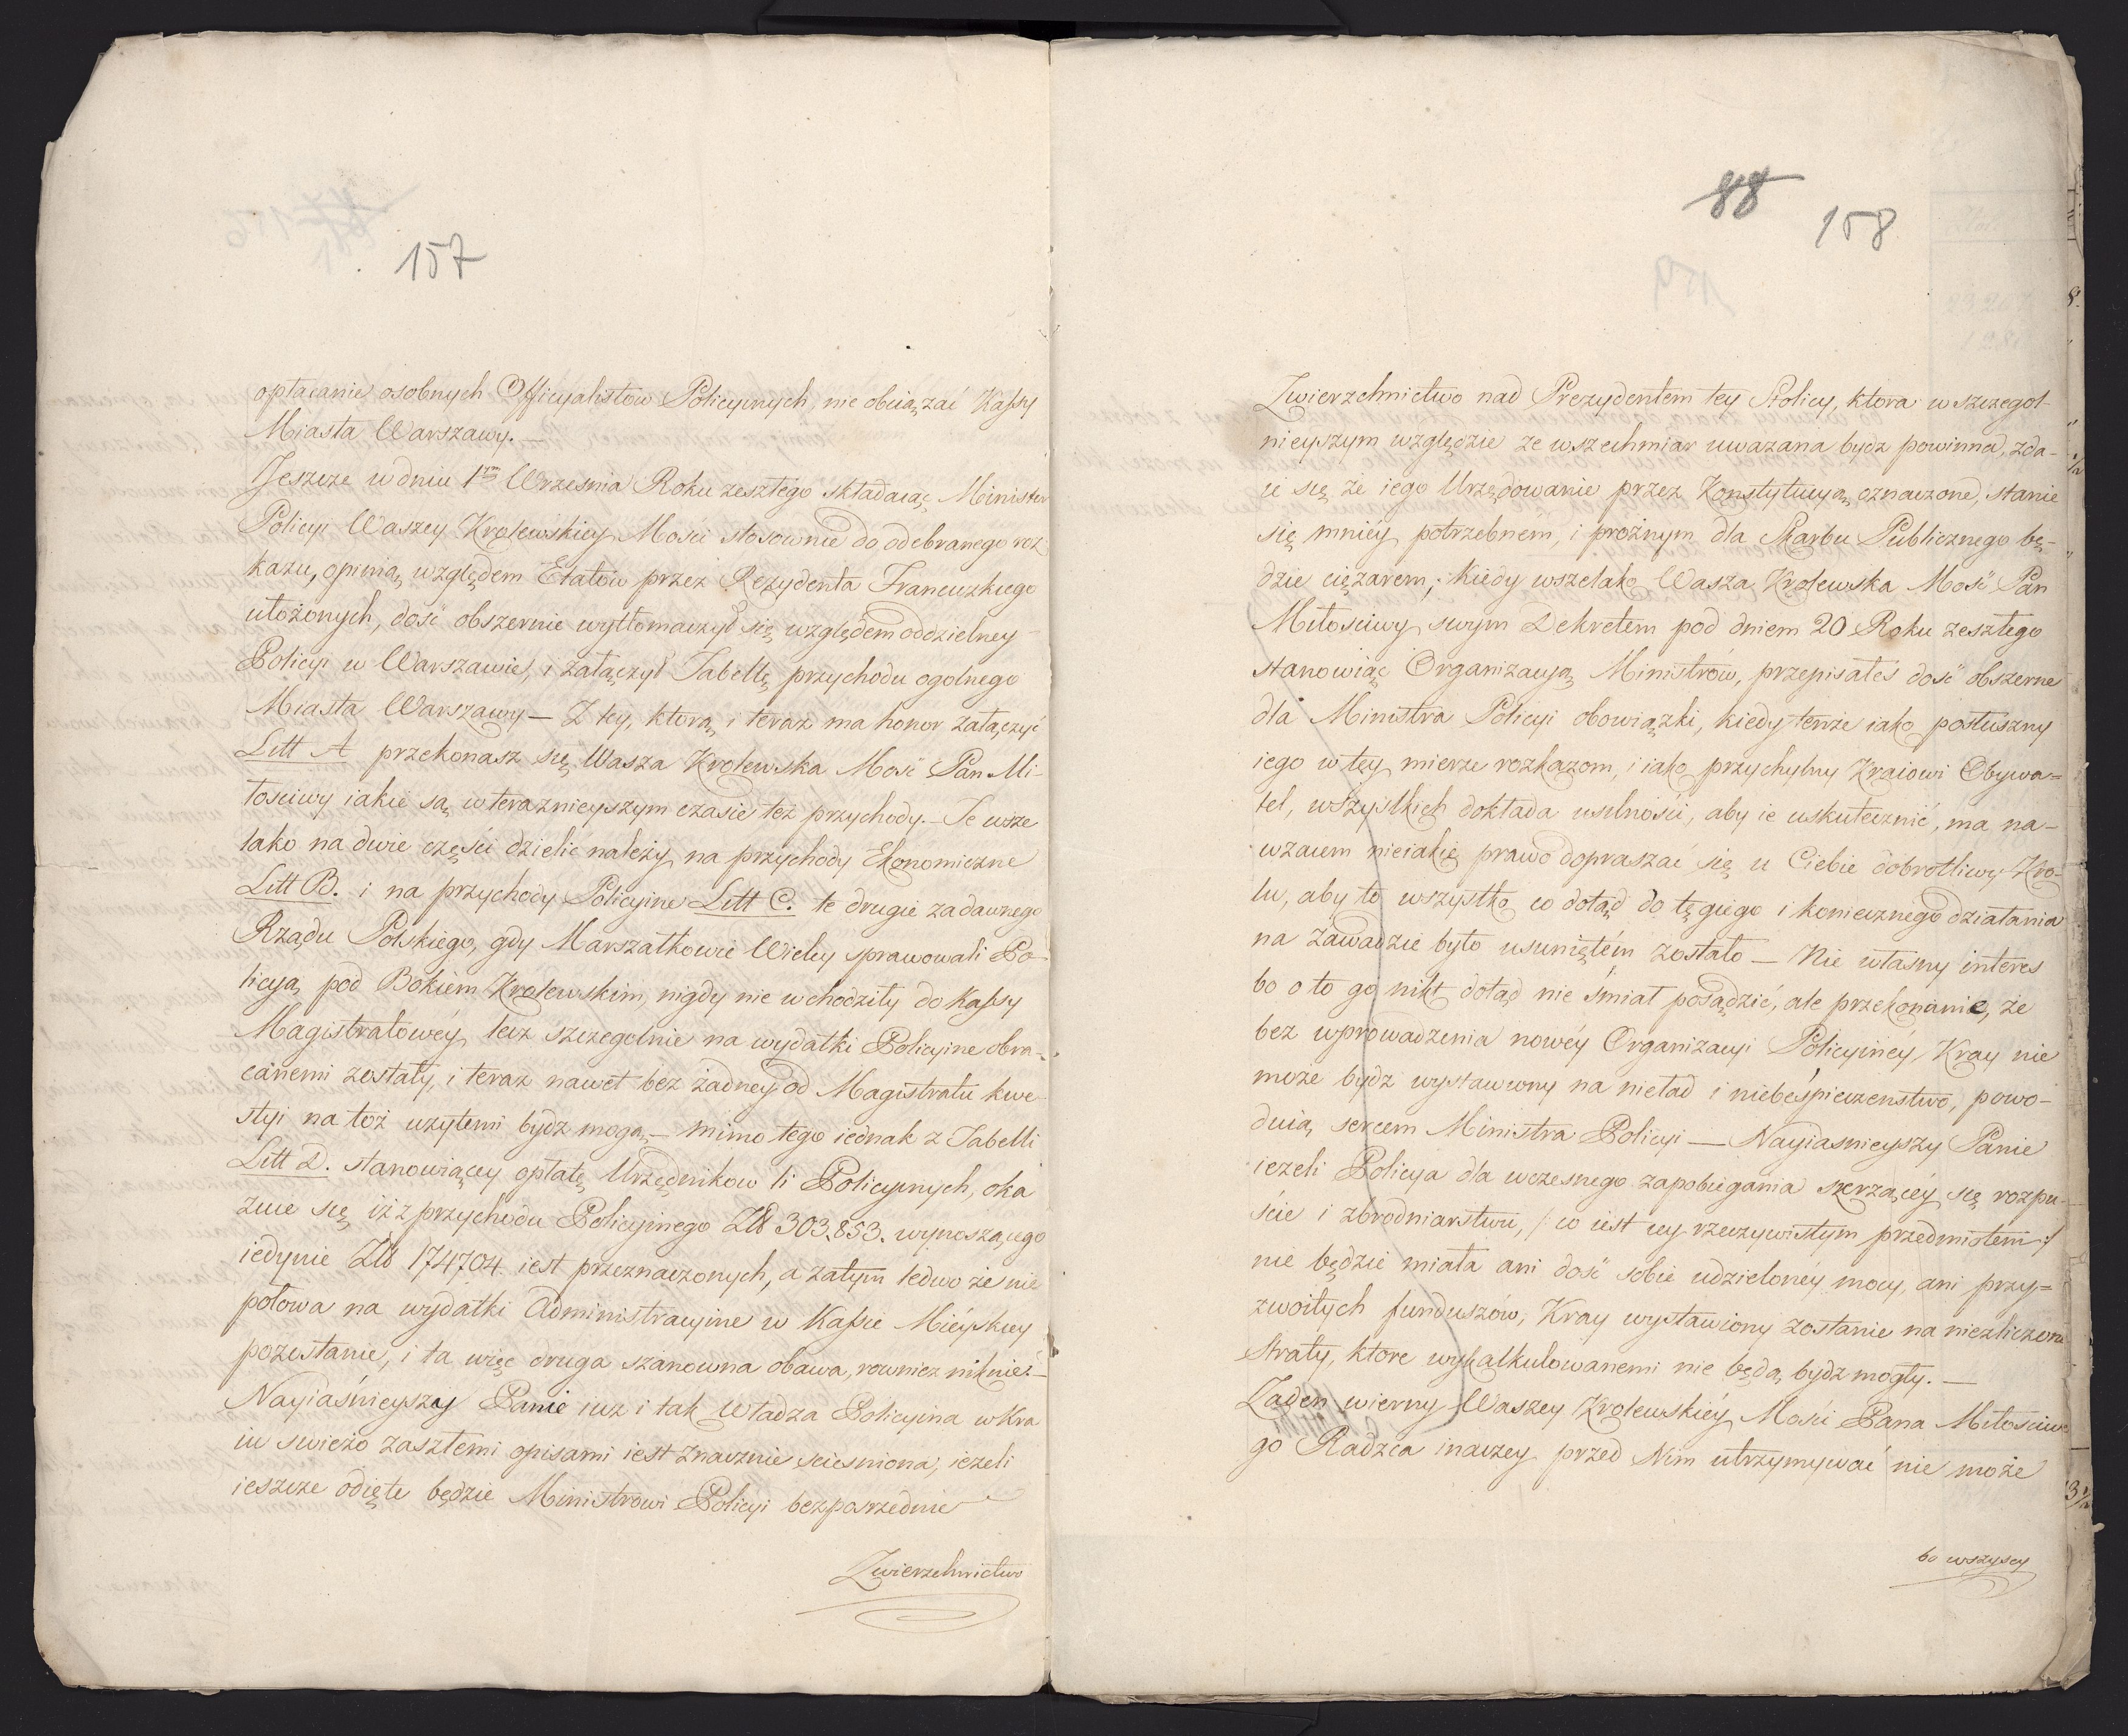 157
opłacanie osobnych Officyalistow Policyinych, nie obciązać Kassy
Miasta Warszawy. —
Jeszcze w dniu 1ym Wrzesnia Roku zeszłego składaiąc Minister
Policyi Waszey Krolewskiey Mosci stosownie do odebranego roz
kazu, opinią względem Etatow przez Rezydenta Francuzkiego
ułożonych, dość obszernie wytłomaczył się względem oddzielney
Policyi w Warszawie, i załączył Tabellę przychodu ogolnego
Miasta Warszawy — Z tey, ktorą i teraz ma honor załączyć
Litt A przekonasz się Wasza Krolewska Mość Pan Mi-
łosciwy iakie są w teraznieyszym czasie też przychody. — Te wsze
lako na dwie części dzielić należy na przychody Ekonomiczne
Litt B. i na przychody Policyine Litt C. te drugie za dawnego
Rządu Polskiego, gdy Marszałkowie Wielcy sprawowali Po-
licyą pod Bokiem Krolewskim, nigdy nie wchodziły do Kassy
Magistratowéy, lecz szczegolnie na wydatki Policyine obra-
canemi zostały, i teraz nawet bez żadney od Magistratu kwe-
styi na toż użytemi bydz mogą, — mimo tego iednak z Tabelli
Litt D. stanowiącey opłatę Urzędnikow li Policyinych, oka
zuie się iż z przychodu Policyinego Złł 303.853. wynoszącego
iedynie Złł 174704 iest przeznaczonych, a zatym ledwo że nie
połowa na wydatki Administracyine w Kassie Mieyskiey
pozostanie, i ta więc druga szanowna obawa, rowniez niknie! —
Nayiaśnieyszy Panie iuz i tak Władza Policyina w Kra
iu swieżo zaszłemi opisami iest znacznie sciesniona, iezeli
ieszcze odięte będzie Ministrowi Policyi bezposrzednie
Zwierzchnictwo
88
158
Zwierzchnictwo nad Prezydentem tey Stolicy, ktora w szczegol-
nieyszym względzie ze wszechmiar uwazana bydz powinna, zda-
ie się że iego Urzędowanie przez Konstytucyą oznaczone, stanie
się mniéy potrzebnem, i prożnym dla Skarbu Publicznego bę-
dzie cięzarem; kiedy wszelako Wasza Krolewska Mość Pan
Miłosciwy swym Dekretem pod dniem 20 Roku zeszłego
stanowiąc Organizacyą Ministrów, przepisałeś dość obszerne
dla Ministra Policyi obowiązki, kiedy tenże iako posłuszny
iego w tey mierze rozkazom, i iako przychylny Kraiowi Obywa=
tel, wszystkich dokłada usilności, aby ie uskutecznić, ma na-
wzaiem nieiakie prawo dopraszać się u Ciebie dobrotliwy Kro-
lu, aby to wszystko co dotąd do tęgiego i koniecznego działania
na zawadzie było usuniętém zostało — Nie własny interes
bo o to go nikt dotąd nie śmiał posądzić, ale przekonanie, że
bez wprowadzenia nowéy Organizacyi Policyinéy, Kray nie
może bydz wystawiony na nieład i niebeśpieczenstwo, powo-
duią sercem Ministra Policyi — Nayiasnieyszy Panie
iezeli Policya dla wczesnego zapobiegania szerzącéy się rozpu-
ście i zbrodniarstwu, /: co iest iey rzeczywistym przedmiotem :/
nie będzie miała ani dość sobie udzielonéy mocy, ani przy=
zwoitych funduszów, Kray wystawiony zostanie na niezliczone
Straty, ktore wykalkulowanemi nie będą bydz mogły. —
Zaden wierny Waszey Krolewskiéy Mości Pana Miłosciwe
go Radzca inaczey przed Nim utrzymywać nie może
bo wszyscy